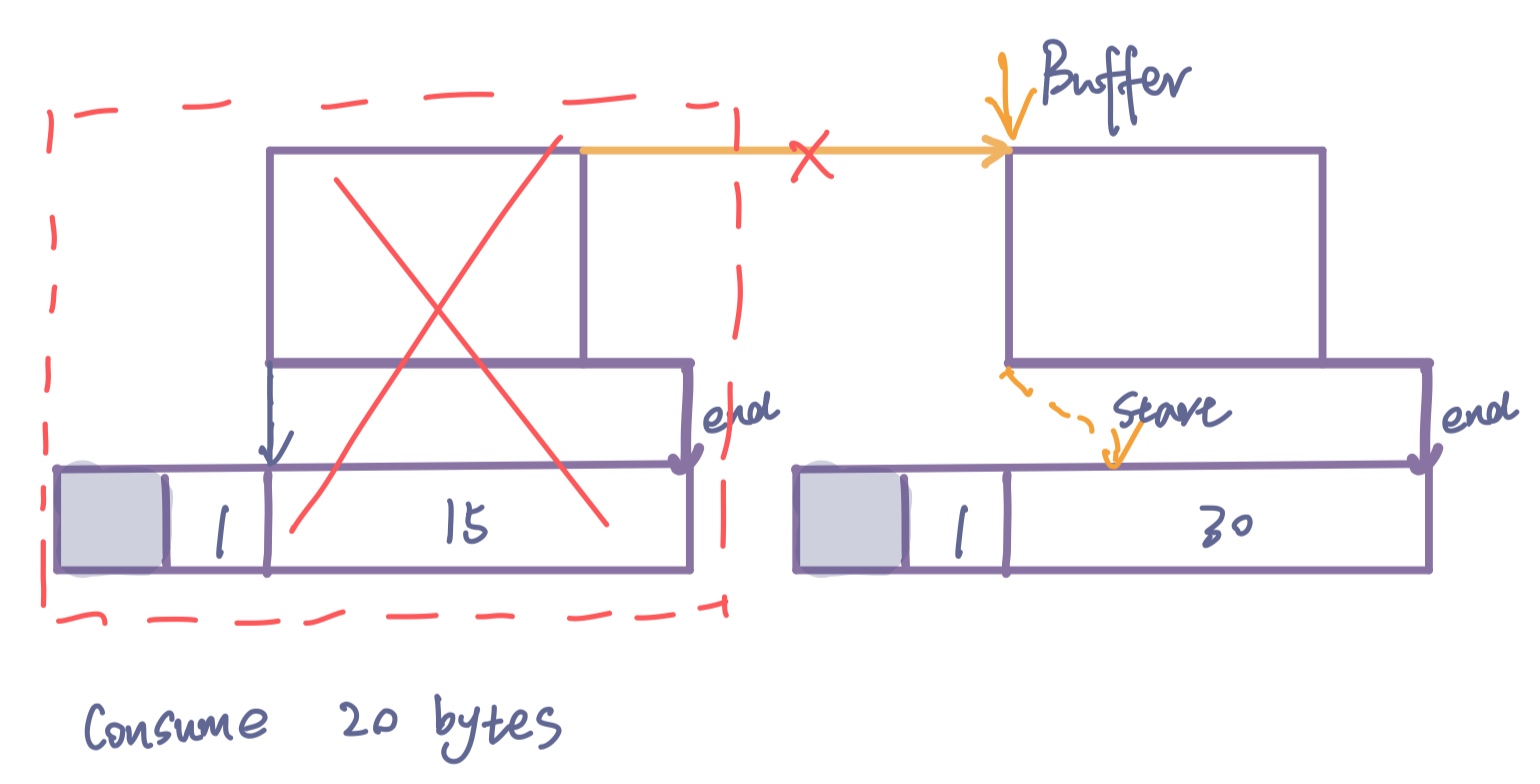 Buffer
end
start
end
1
15
1
30
Consume 20 bytes